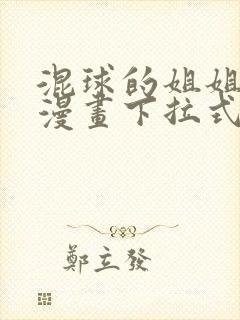 混球的姐姐
漫畫下拉式
鄭立發